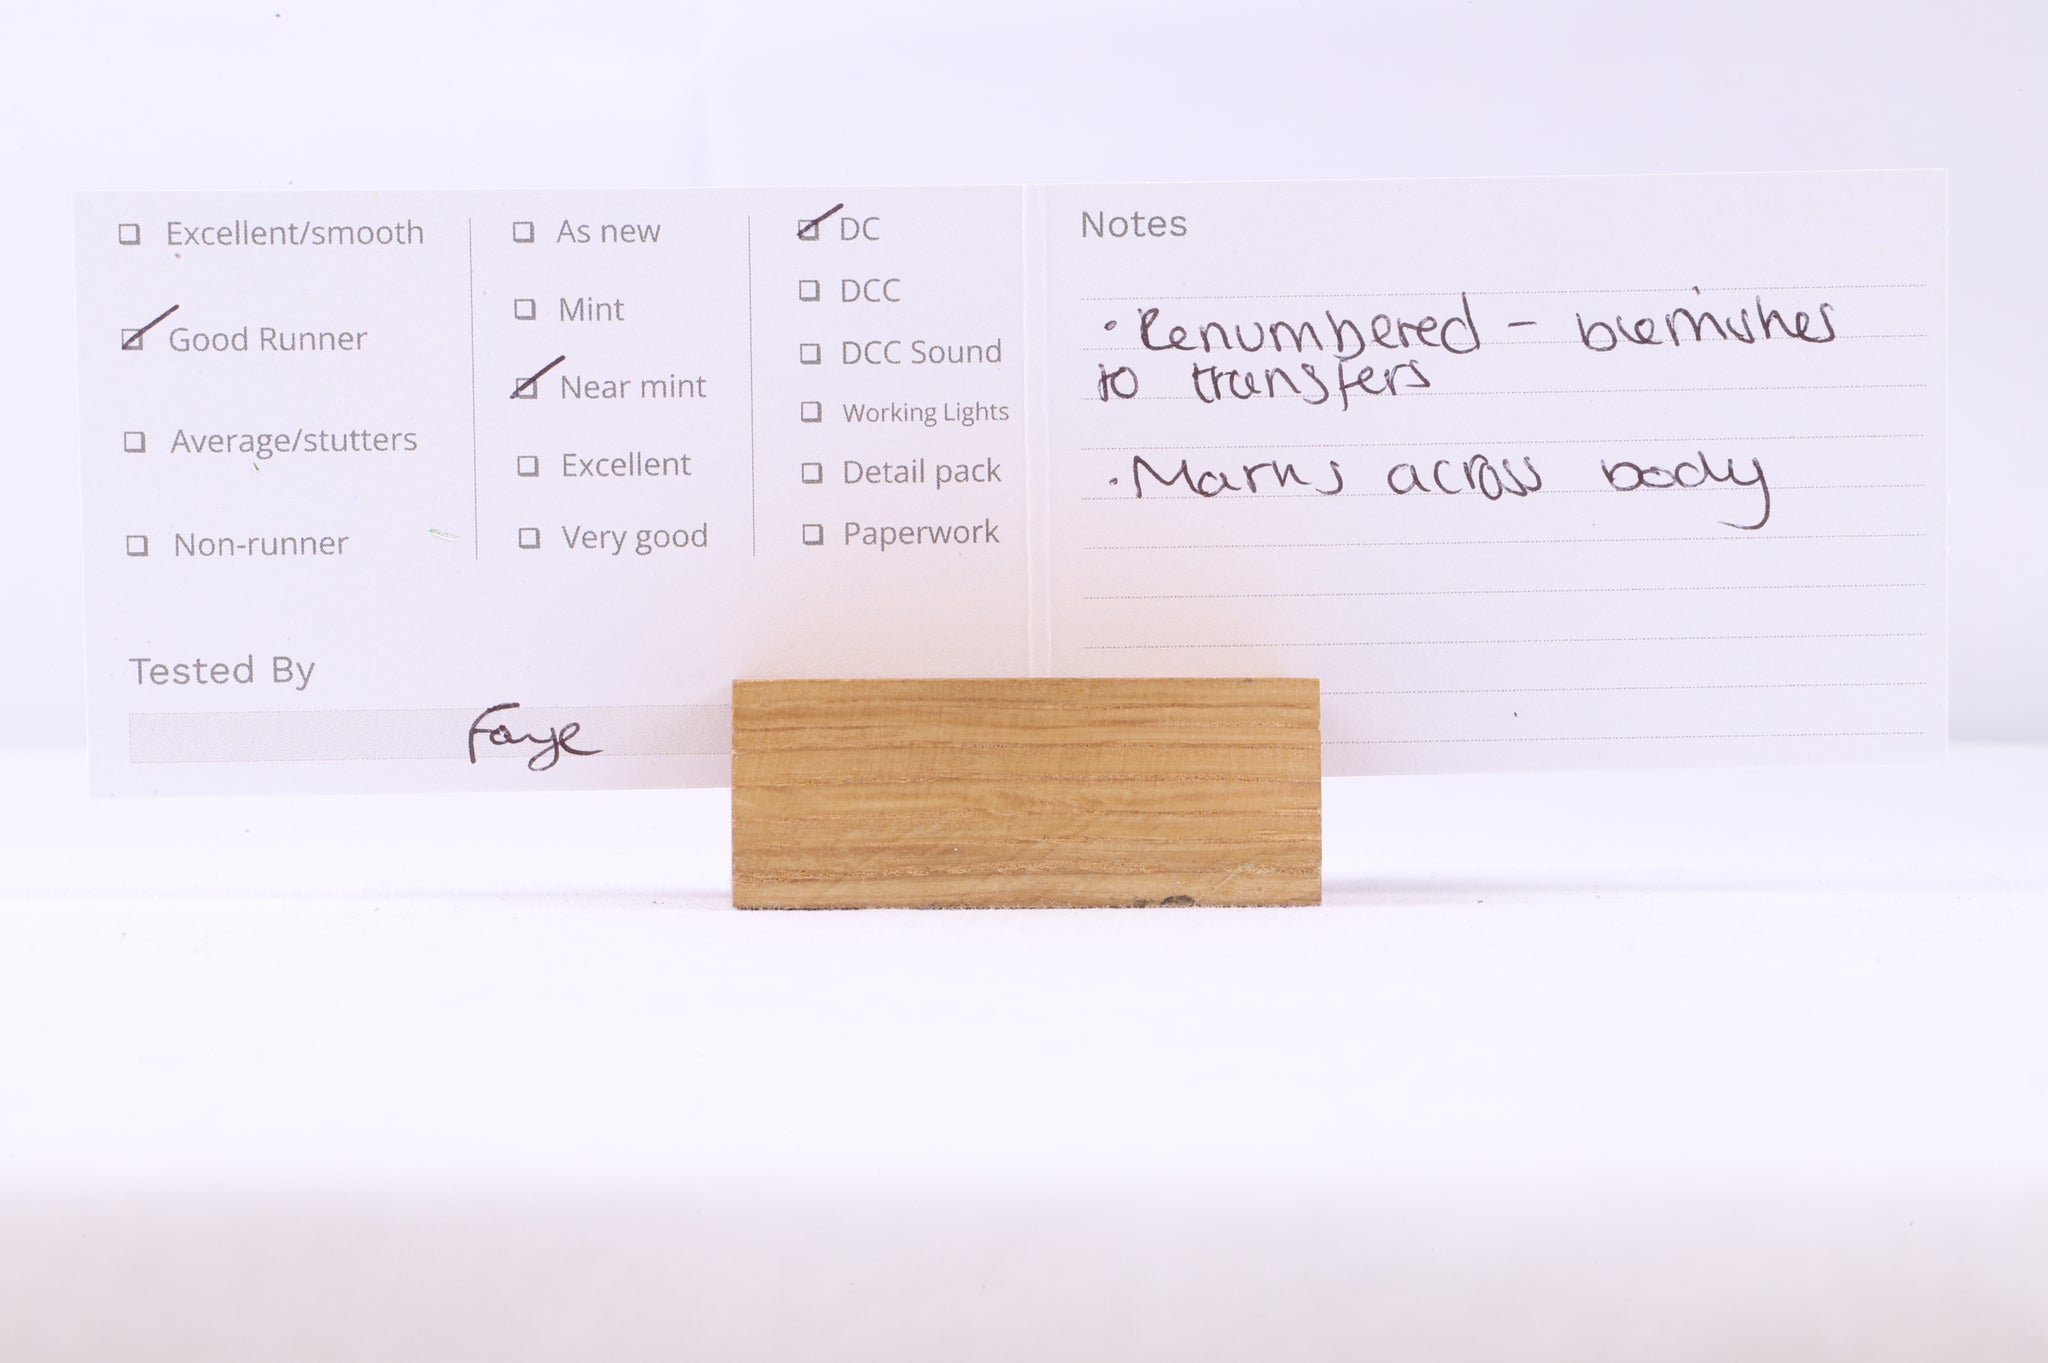 Excellent/smooth
Good Runner
Average/stutters
Non-runner
As new
Mint
Near mint
Excellent
Very good
DC
DCC
DCC Sound
Working Lights
Detail pack
Paperwork
Tested By
Faye
Notes
• Renumbered - blemishes
to transfers
• Marks across body